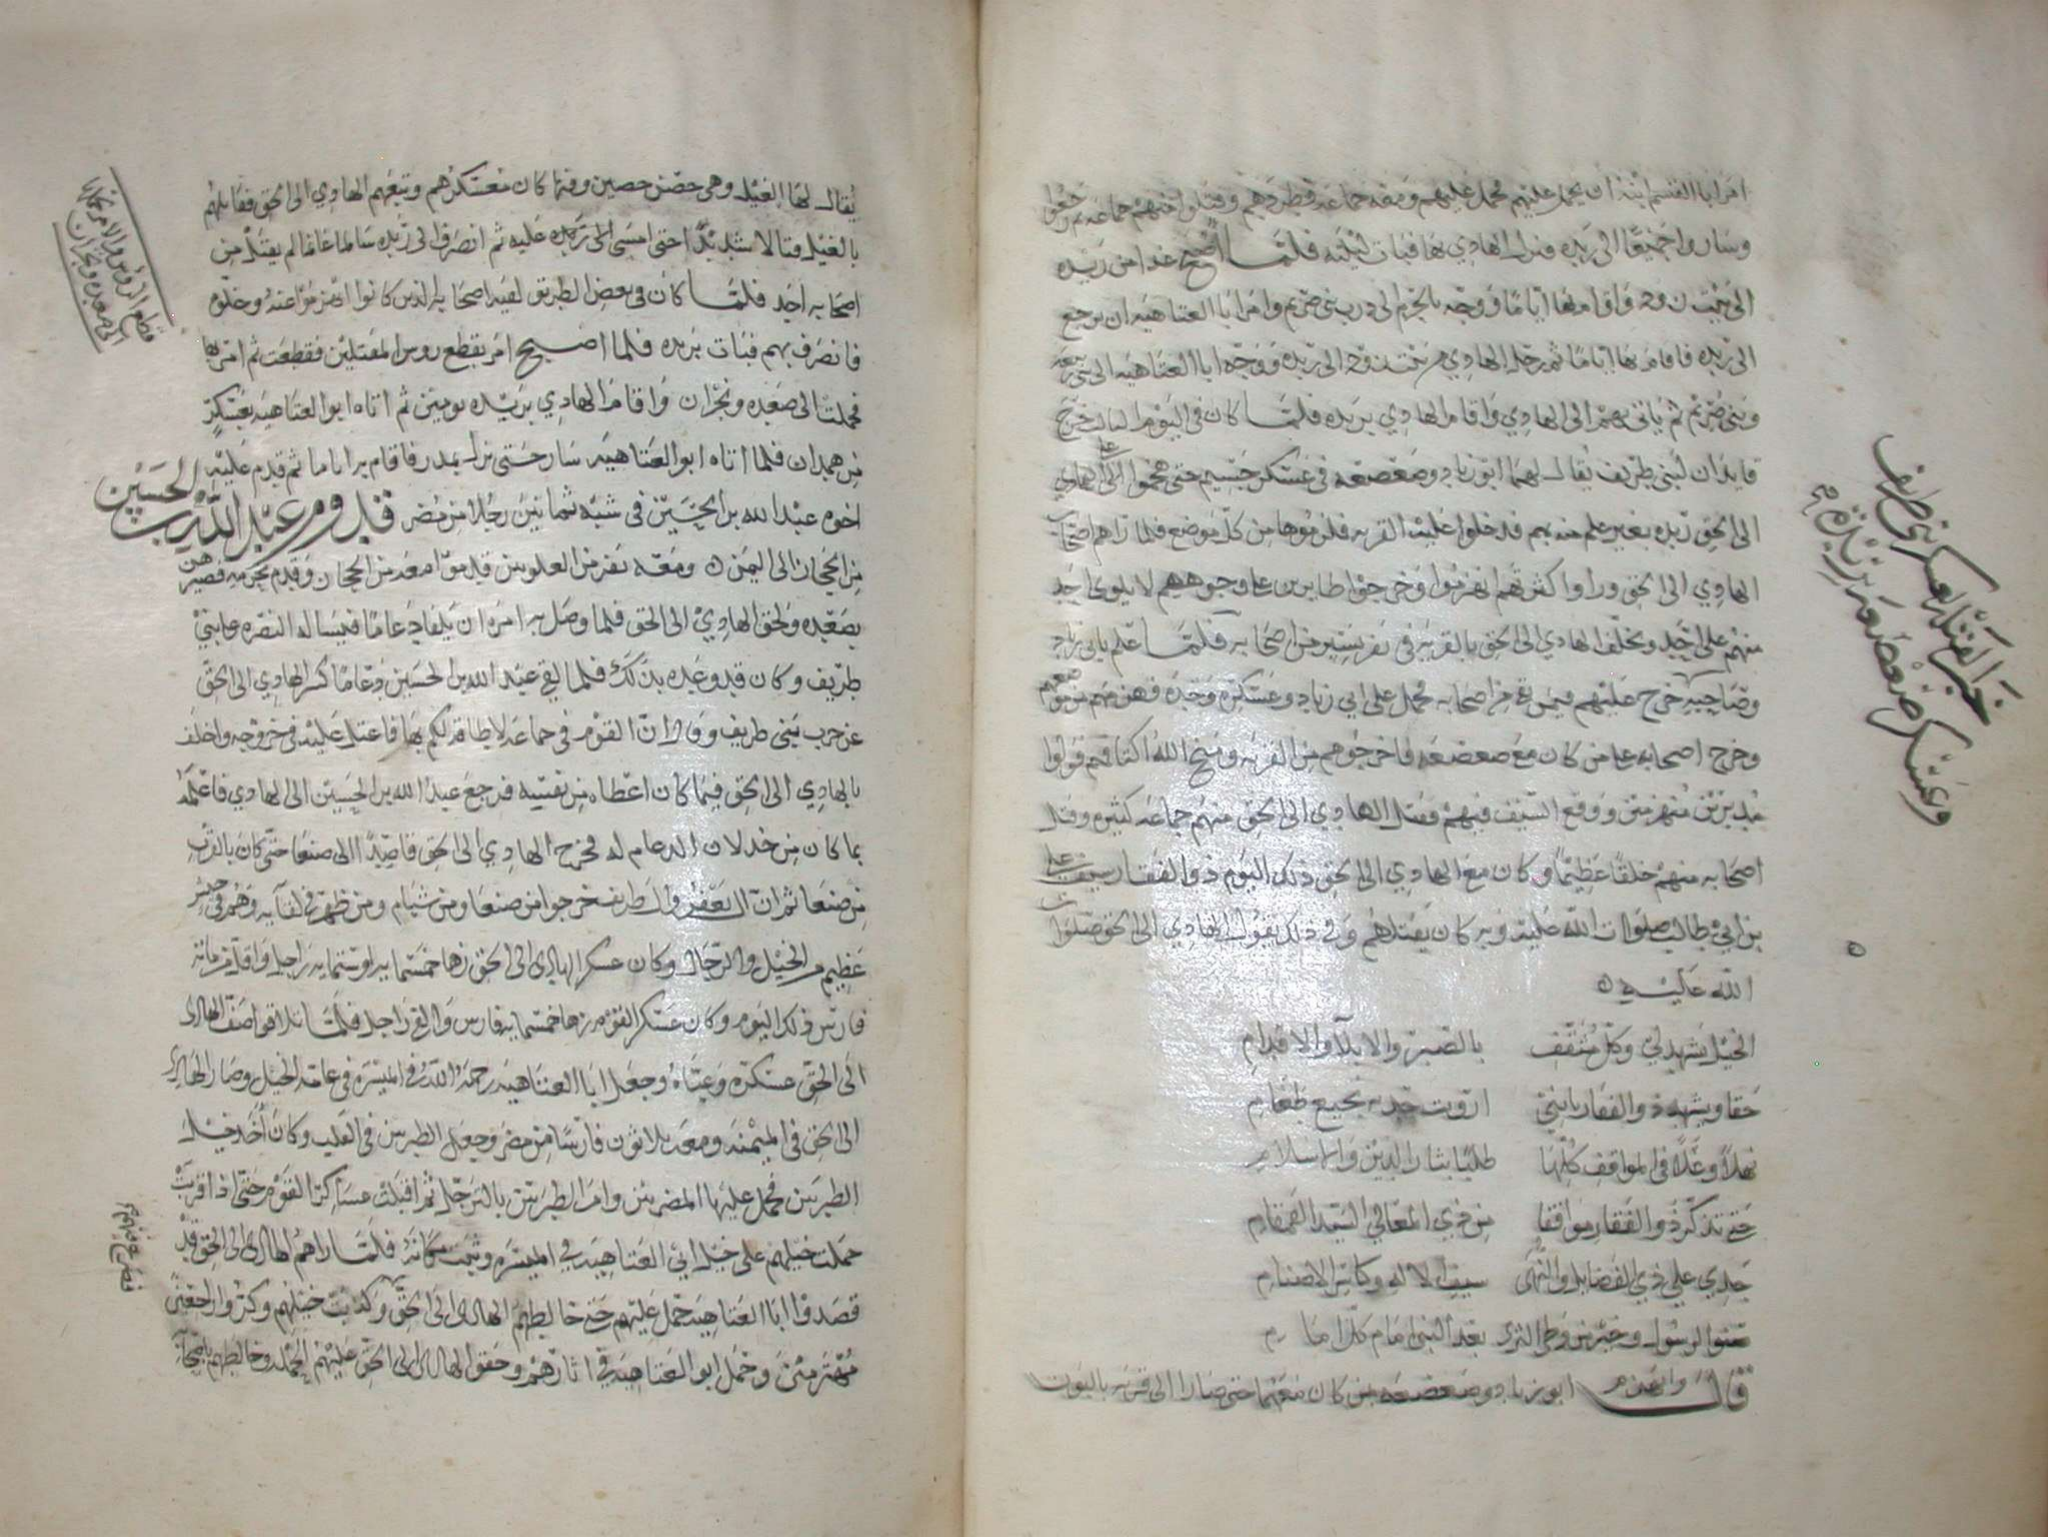 امر ابا القسم ابنه ان يحمل عليهم فحمل عليهم ومعه جماعه فطردهم وقتلوا منهم جماعه ثم رجعوا
وساروا جميعًا الى ريده فنزل الهادي بها فبات ليلته فلما اصبح غدا من ريده
الى واقام بها ايامًا ووجه الى درب بني صريم وامر ابا العتاهيه ان يرجع
الى ريده فاقام بها ايامًا ثم رحل الهادي من الى ريده ووجه ابا العتاهيه الى بني ربيعه
وبني صريم ثم ياتي بهم الى الهادي واقام الهادي بريده فلما كان في اليوم الثالث خرج
قايدان لبني طريف يقال لهما ابو زياد وصعصعه في عسكر جسيم حتى هجموا على الهادي
الى الحق ريده بغير علم منه بهم قد خلوا عليه القريه فلزموها من كل موضع فلما راهم اصحاب
الهادي الى الحق وراوا كثرتهم انهزموا وخرجوا طايرين على وجوههم لا يلوي احد
منهم على احد وتخلف الهادي الى الحق بالقريه في نفر يسير من اصحابه فلما علم بابي زياد
وصاحبه خرج عليهم فيمن بقي من اصحابه فحمل على ابي زياد وعسكره وحده فهزمهم من موضعهم
وخرج اصحابه على من كان مع صعصعه فاخرجوهم من القريه ومنح الله اكتافهم فولوا
مدبرين منهزمين ووقع السيف فيهم فقتل الهادي الى الحق منهم جماعه كثيره وقتل
اصحابه منهم خلقًا عظيمًا وكان مع الهادي الى الحق ذلك اليوم ذو الفقار سيف علي
بن ابي طالب صلوات الله عليه وبه كان يقتلهم وفي ذلك يقول الهادي الى الحق صلوات
الله عليه
الخيل يشهد لي وكل مثقف بالصبر والابلا والاقدام
حقا ويشهد ذو الفقار بانني ارويت حديه نجيع طغام
نهلاً وعلاً في المواقف كلها طلبًا بثار الدين والاسلام
حتى تذكر ذو الفقار مواقفا من ذي المعالي السيد القمقام
جدي علي ذي الفضايل والنهى سيف الاله وكاسر الاصنام
صنو الرسول وخير من وطي الثرى بعد النبي امام كل امام
قال وانهزم ابو زياد وصعصعه بمن كان معهما حتى صارا الى قريه بالبون
خبر القتل لعسكر بني طريف
وعسكر صعصعه بريده
يقال لها الغيل وهي حصن حصين وفيها كان معسكرهم وتبعهم الهادي الى الحق فقاتلهم
بالغيل قتالا شديدًا حتى امسى الى ريده عليه ثم انصرف الى ريده سالما غانما لم يقتل من
اصحابه احد فلما كان في بعض الطريق لقيه اصحابه الذين كانوا انهزموا عنه وخلوه
فانصرف بهم فبات بريده فلما اصبح امر بقطع روس المقتلين فقطعت ثم امر بها
فحملت الى صعده ونجران واقام الهادي بريده يومين ثم اتاه ابو العتاهيه بعسكر
من همدان فلما اتاه ابو العتاهيه سار حتى نزل بمدر فاقام بها اياما ثم قدم عليه
اخوه عبد الله بن الحسين في شبه ثمانين رجلا من مضر قدوم عبد الله بن الحسين
من الحجاز الى اليمن ومعه نفر من العلويين قدموا معه من الحجاز وقدم بحرمه فصيرهن
بصعده ولحق الهادي الى الحق فلما وصل به امره ان يلقا دعامًا فيساله النصره على بني
طريف وكان قد وعده بذلك فلما لقي عبد الله بن الحسين دعامًا كسر الهادي الى الحق
عن حرب بني طريف وقال ان القوم في جماعه لا طاقه لكم بها فاعتل عليه في خروجه واخلف
بالهادي الى الحق فيما كان اعطاه من نفسه فرجع عبد الله بن الحسين الى الهادي فاعلمه
بما كان من خذلان الدعام له فخرج الهادي الى الحق قاصدًا الى صنعا حتى كان بالقرب
من صنعا ثم ان ال يعفر وال طريف خرجوا من صنعا ومن شبام ومن ظهر في لقايه وهم في جيش
عظيم من الخيل والرجال وكان عسكر الهادي الى الحق زها خمسمايه او ستمايه راجل واقل من مايه
فارس ذلك اليوم وكان عسكر القوم زها خمسمايه فارس والفي راجل فلما تلاقوا صف الهادي
الى الحق عسكره وعباه وجعل ابا العتاهيه رحمه الله في الميسره في عامه الخيل وصار الهادي
الى الحق في الميمنه ومعه ثلاثون فارسًا من مضر وجعل الطبريين في القلب وكان
الطبريين فحمل عليها المضريين وامر الطبريين بالترجل ثم اقبلت عساكر القوم حتى اذا قربت
حملت خيلهم على خيل ابي العتاهيه في الميسره وثبت مكانه فلما راهم الهادي الى الحق قد
قصدوا ابا العتاهيه حمل عليهم حتى خالطهم الهادي الى الحق وكذبت خيلهم وكروا راجعين
منهزمين وحمل ابو العتاهيه في اثارهم وحقق الهادي الى الحق عليهم الحمله وخالطهم باصحابه
قطع الروس والامر بحملها
الى صعده ونجران